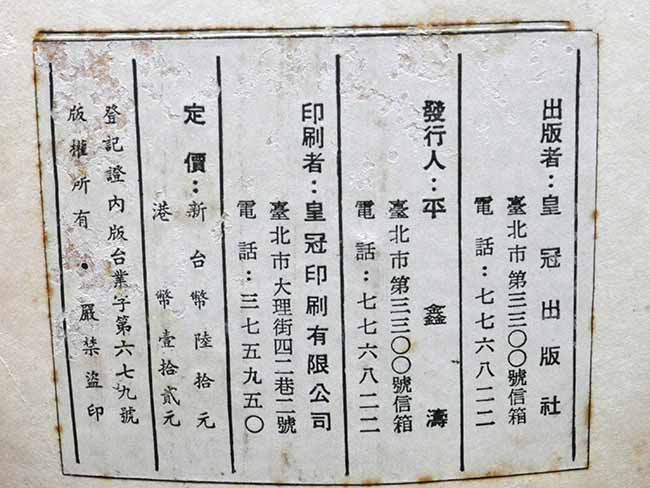 出版者：皇冠出版社
臺北市第三三〇〇號信箱
電話：七七六八二二
發行人：平鑫濤
臺北市第三三〇〇號信箱
電話：七七六八二二
印刷者：皇冠印刷有限公司
臺北市大理街四二巷二號
電話：三七五九五〇
定價：新台幣陸拾元
港幣壹拾貳元
登記證內版台業字第六七九號
版權所有・嚴禁盜印